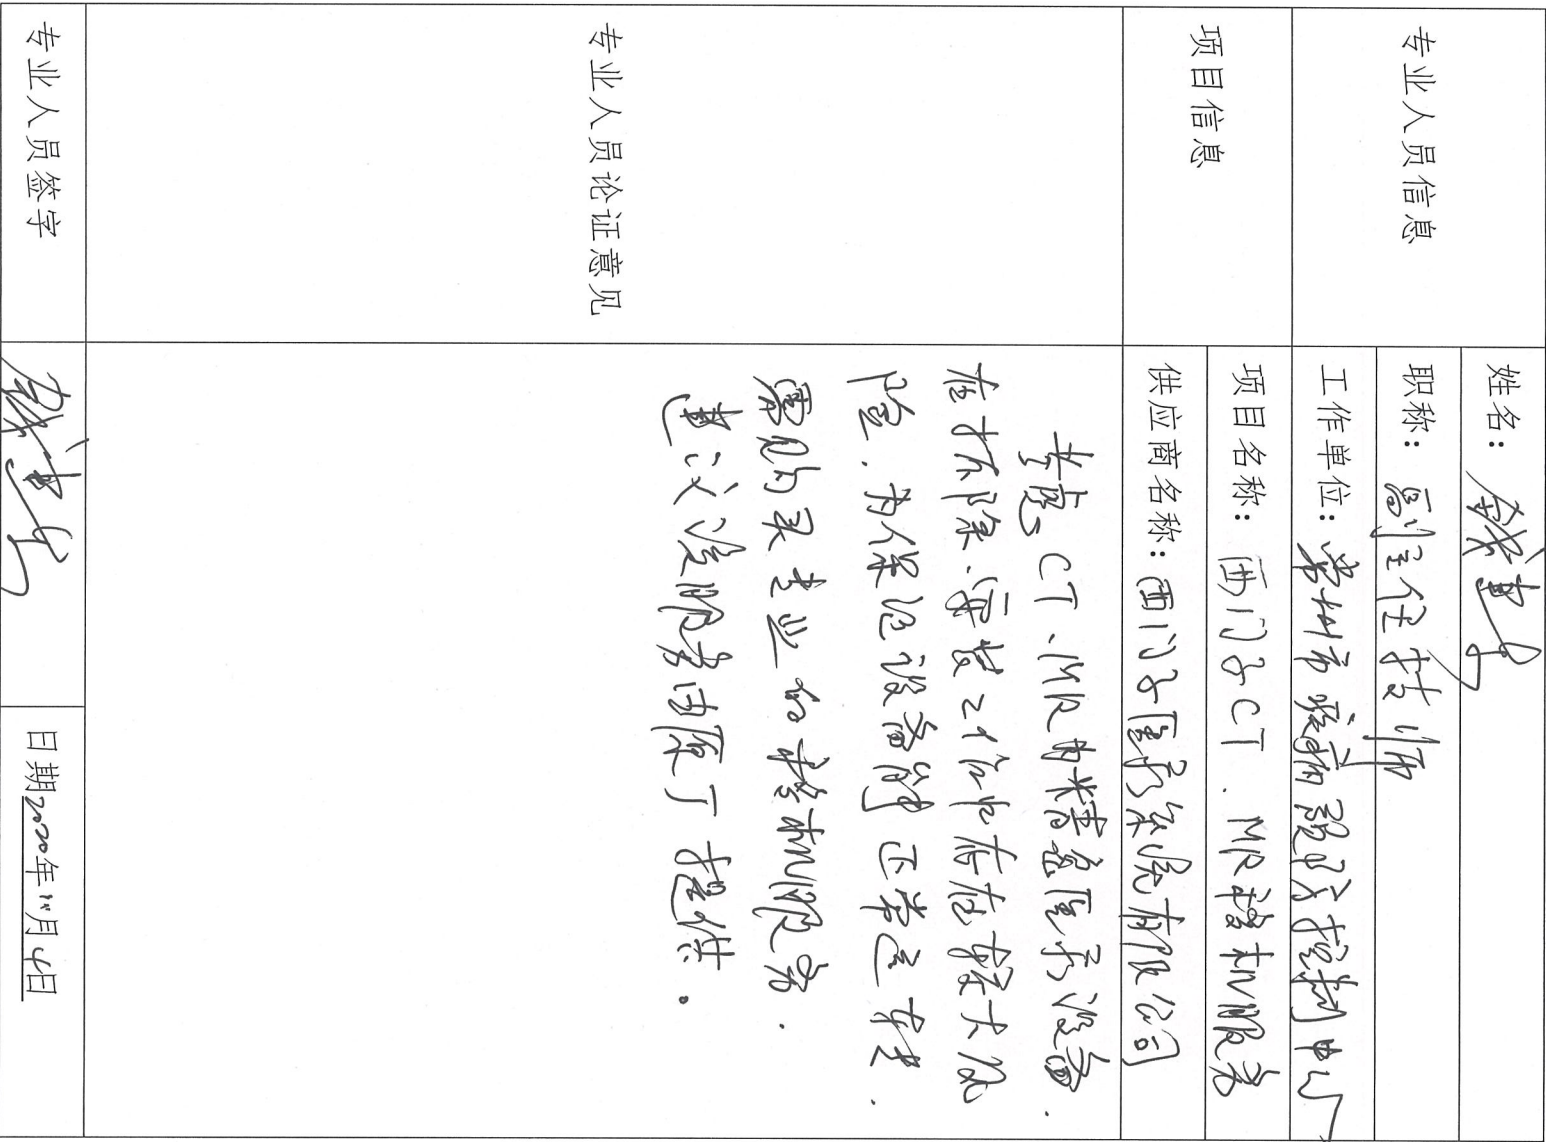 专业人员信息
姓名：钱建
职称：副主任技师
工作单位：常州市疾病预防控制中心
项目信息
项目名称：西门子CT、MR移机服务
供应商名称：西门子医疗系统有限公司
专业人员论证意见
考虑CT、MR为精密医疗设备，
在拆除、安装工作中存在较大风
险，为保证设备能正常运转，
需购买专业的移机服务，
建议该服务由原厂提供。
专业人员签字
钱建
日期2020年11月4日